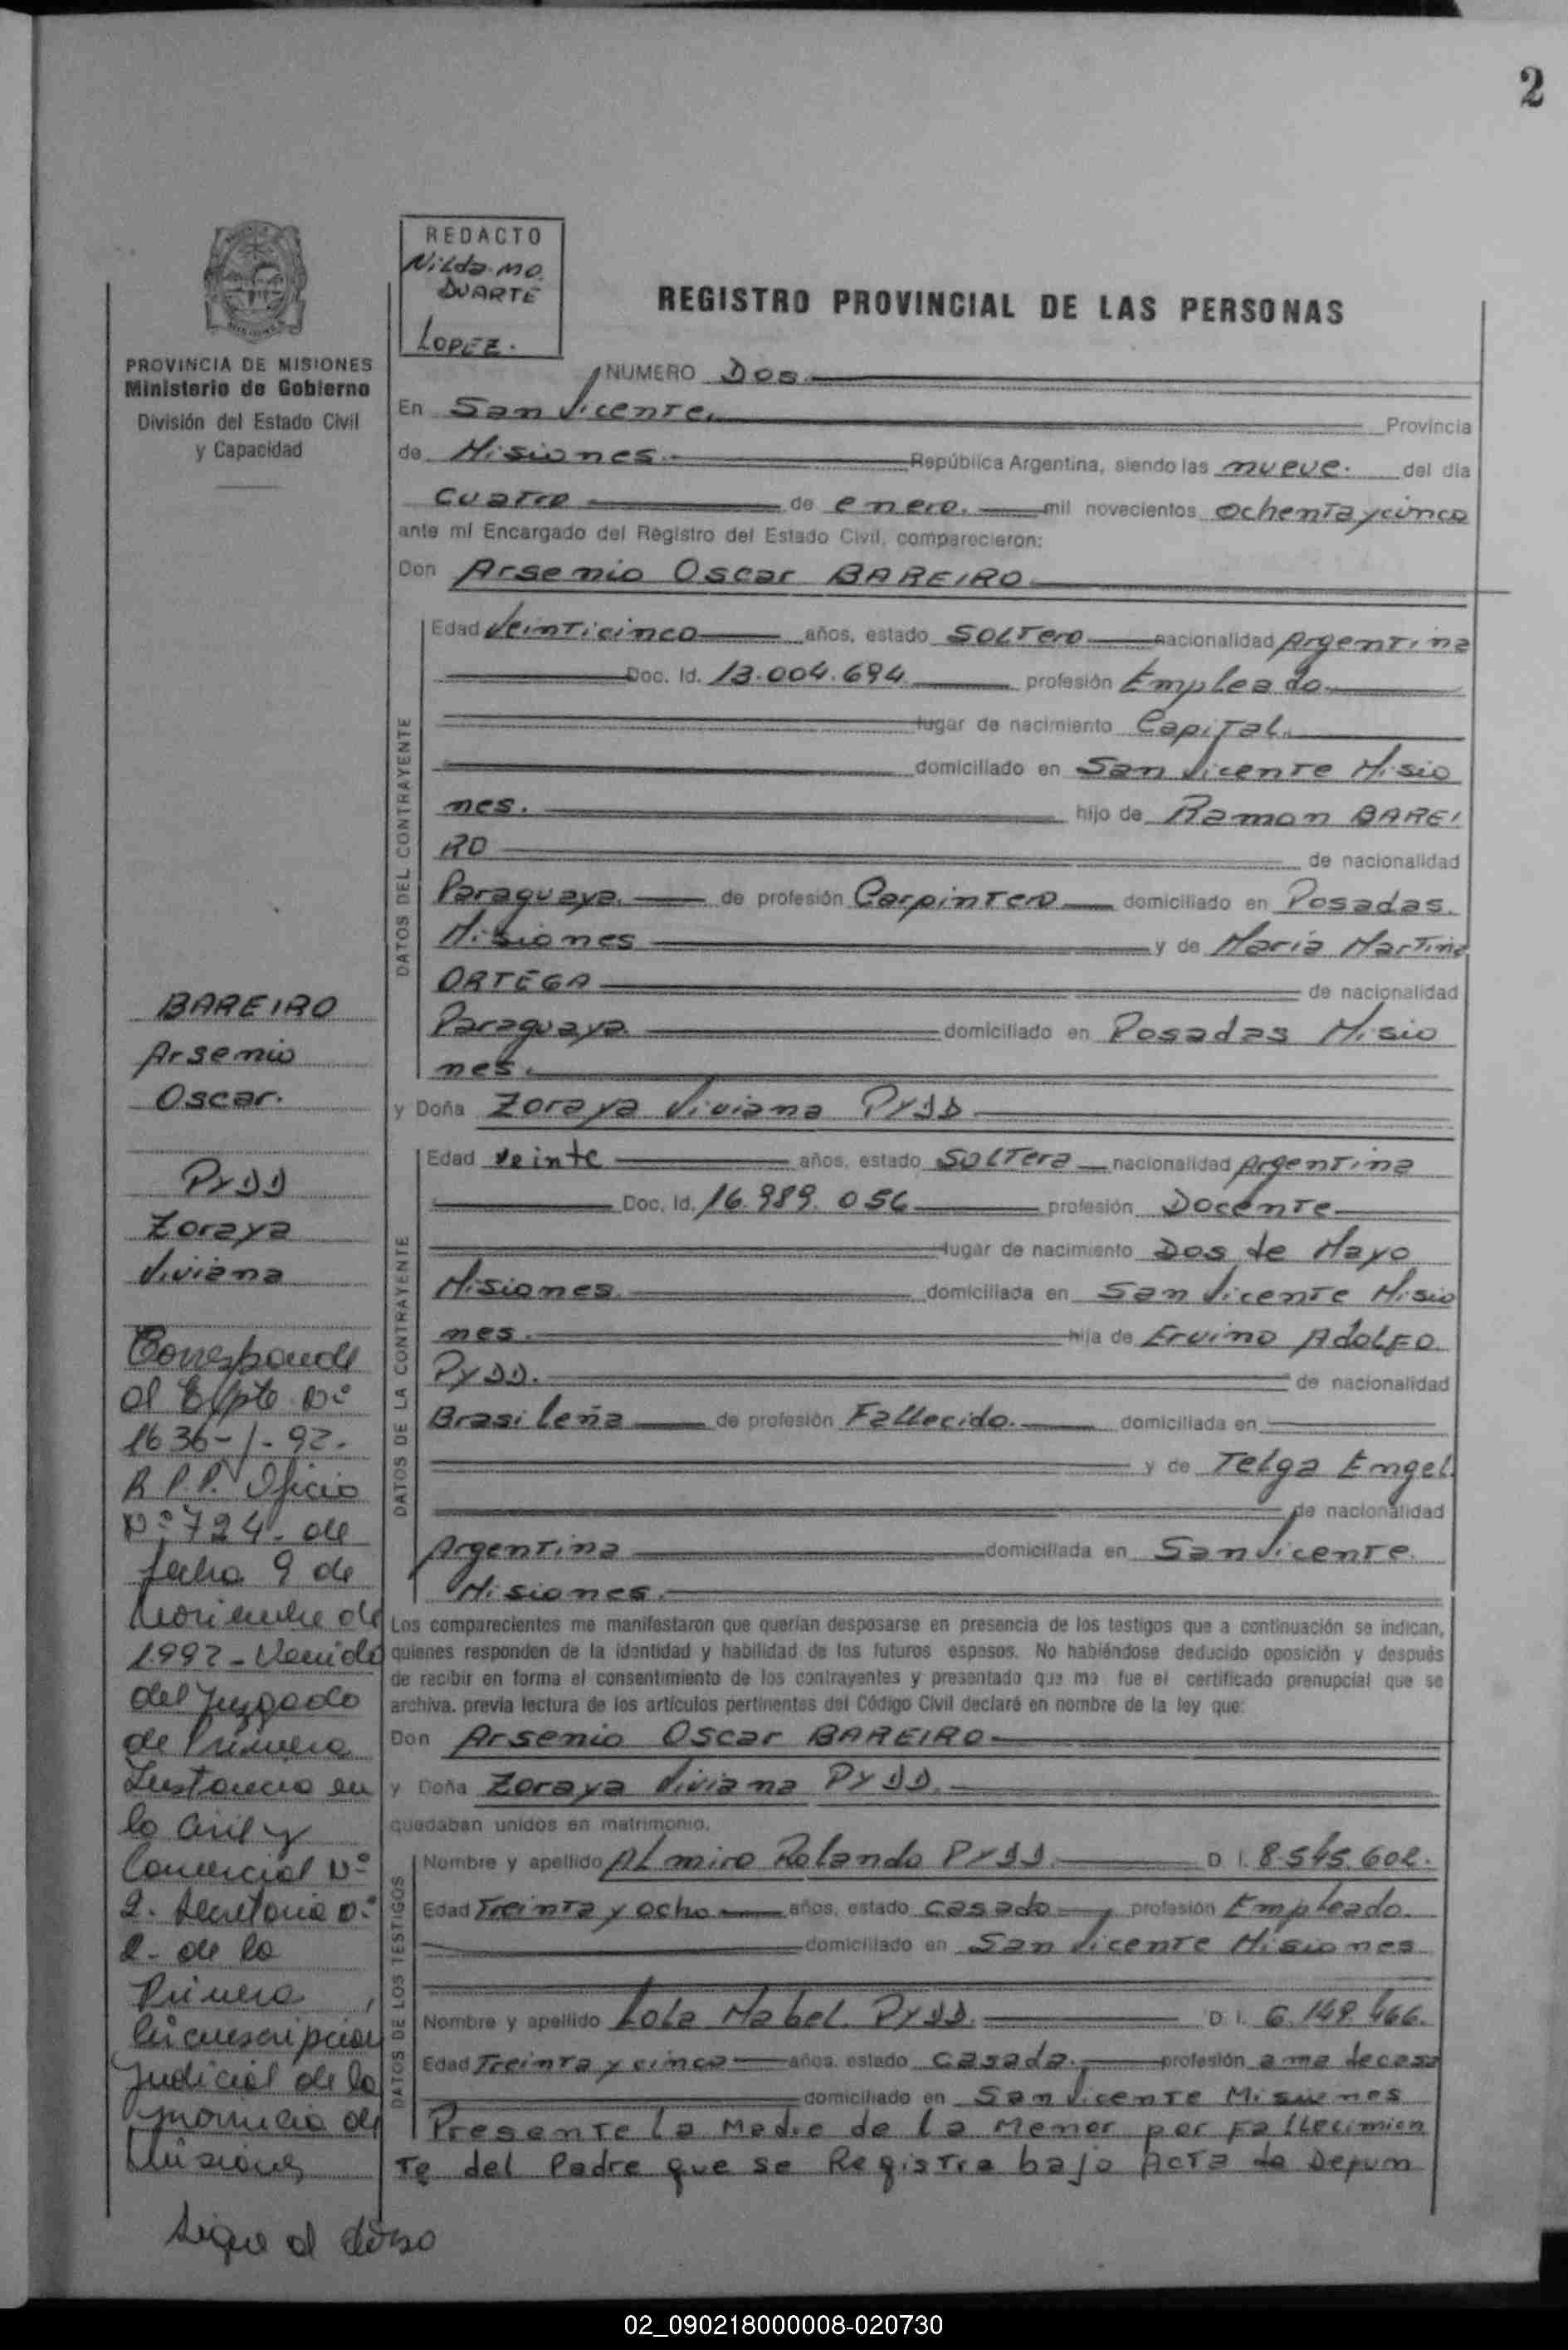 2
REDACTO
Nilda Mo.
DUARTE
LOPEZ.
REGISTRO PROVINCIAL DE LAS PERSONAS
PROVINCIA DE MISIONES
Ministerio de Gobierno
División del Estado Civil
y Capacidad
NUMERO Dos
En San Vicente. Provincia
de Misiones. República Argentina, siendo las nueve. del día
cuatro de enero. mil novecientos ochenta y cinco
ante mí Encargado del Registro del Estado Civil, comparecieron:
Don Arsenio Oscar BAREIRO
DATOS DEL CONTRAYENTE
Edad Veinticinco años, estado SOLTero nacionalidad Argentina
Doc. Id. 13.004.694 profesión Empleado
lugar de nacimiento Capital.
domiciliado en San Vicente Misio
nes. hijo de Ramon BAREI
RO de nacionalidad
Paraguaya. de profesión Carpintero domiciliado en Posadas.
Misiones y de María Martina
ORTEGA de nacionalidad
Paraguaya domiciliado en Posadas Misio
nes.
y Doña Zoraya Viviana PYDD
DATOS DE LA CONTRAYENTE
Edad veinte años, estado SOLTera nacionalidad Argentina
Doc. Id. 16.989.056 profesión Docente
lugar de nacimiento Dos de Mayo
Misiones. domiciliada en San Vicente Misio
nes. hija de Ervino Adolfo
PYDD. de nacionalidad
Brasileña de profesión Fallecido. domiciliada en
y de Telga Engel.
de nacionalidad
Argentina domiciliada en San Vicente.
Misiones.
Los comparecientes me manifestaron que querían desposarse en presencia de los testigos que a continuación se indican,
quienes responden de la identidad y habilidad de los futuros esposos. No habiéndose deducido oposición y después
de recibir en forma el consentimiento de los contrayentes y presentado que me fue el certificado prenupcial que se
archiva, previa lectura de los artículos pertinentes del Código Civil declaré en nombre de la ley que:
Don Arsenio Oscar BAREIRO
y Doña Zoraya Viviana PYDD.
quedaban unidos en matrimonio.
DATOS DE LOS TESTIGOS
Nombre y apellido Almiro Rolando PYDD. D.I. 8.545.602.
Edad Treinta y ocho años, estado casado profesión Empleado.
domiciliado en San Vicente Misiones
Nombre y apellido Lola Mabel. PYDD. D.I. 6.149.466.
Edad Treinta y cinco años, estado casada. profesión ama de casa
domiciliado en San Vicente Misiones
Presente la Madre de la Menor por Fallecimien
To del Padre que se Registra bajo Acta de Defun
BAREIRO
Arsenio
Oscar.
PYDD
Zoraya
Viviana
Corresponde
al Expte Nº
1636-1-92.
R.P.P. Oficio
Nº 724- de
fecha 9 de
Noviembre de
1992- Venido
del Juzgado
de Primera
Instancia en
lo Civil y
Comercial Nº
2. Secretaria Nº
2- de la
Primera
Circunscripcion
Judicial de la
provincia de
Misiones
Sigue al dorso
02_090218000008-020730